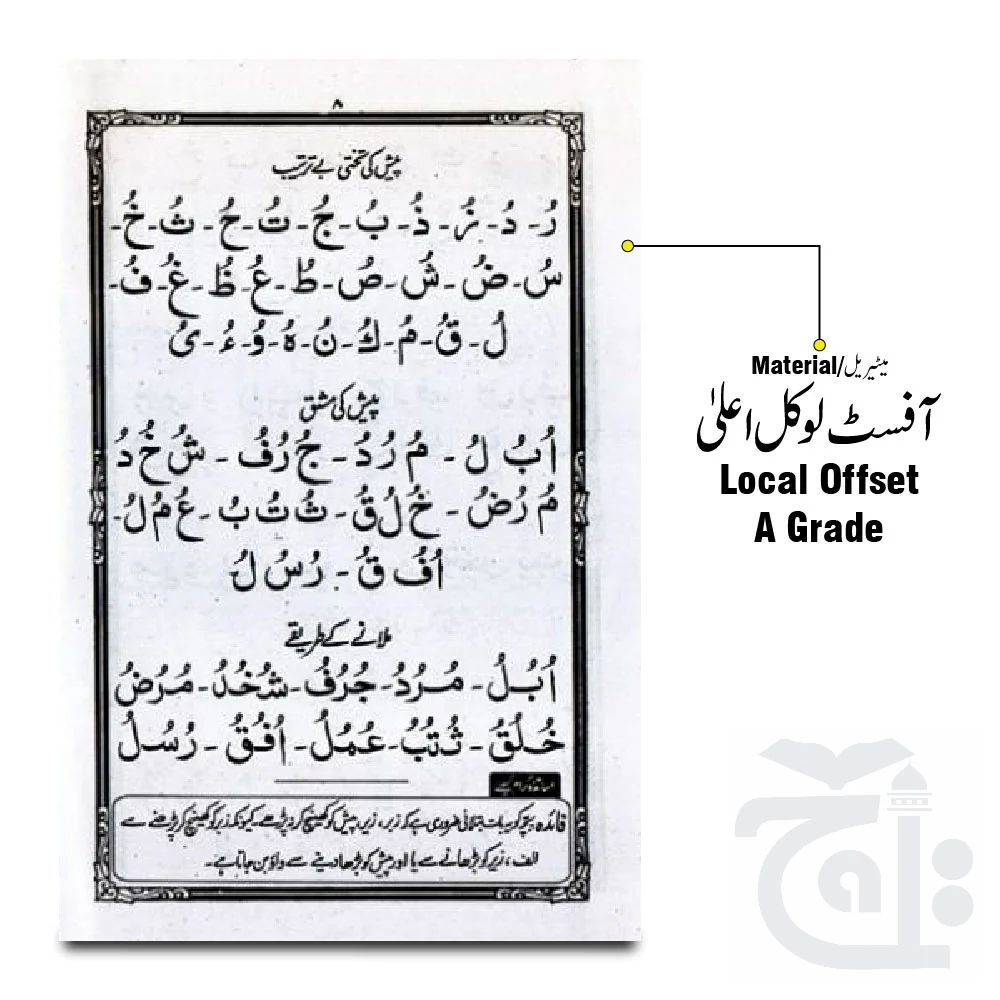 ۸
پیش کی تختی بے ترتیب
رُ - دُ - زُ - ذُ - بُ - جُ - تُ - حُ - ثُ - خُ -
سُ - ضُ - شُ - صُ - طُ - عُ - ظُ - غُ - فُ -
لُ - قُ - مُ - كُ - نُ - هُ - وُ - ءُ - ىُ
پیش کی مشق
اُ بُ لُ - مُ رُ دُ - جُ رُ فُ - شُ خُ دُ
مُ رُ ضُ - خُ لُ قُ - ثُ تُ بُ - عُ مُ لُ -
اُ فُ قُ - رُ سُ لُ
ملانے کے طریقے
اُبُلُ - مُرُدُ - جُرُفُ - شُخُدُ - مُرُضُ
خُلُقُ - ثُتُبُ - عُمُلُ - اُفُقُ - رُسُلُ
فائدہ بچّو کو یہ بات بتانی ضروری ہے کہ زبر، زیر، پیش کو کھینچ کر نہ پڑھے۔ کیونکہ زبر کو کھینچ کر پڑھنے سے
الف، زیر کو بڑھانے سے یا اور پیش کو بڑھا دینے سے واؤ بن جاتا ہے۔
Material/میٹیریل
آفسٹ لوکل اعلیٰ
Local Offset
A Grade
تاج